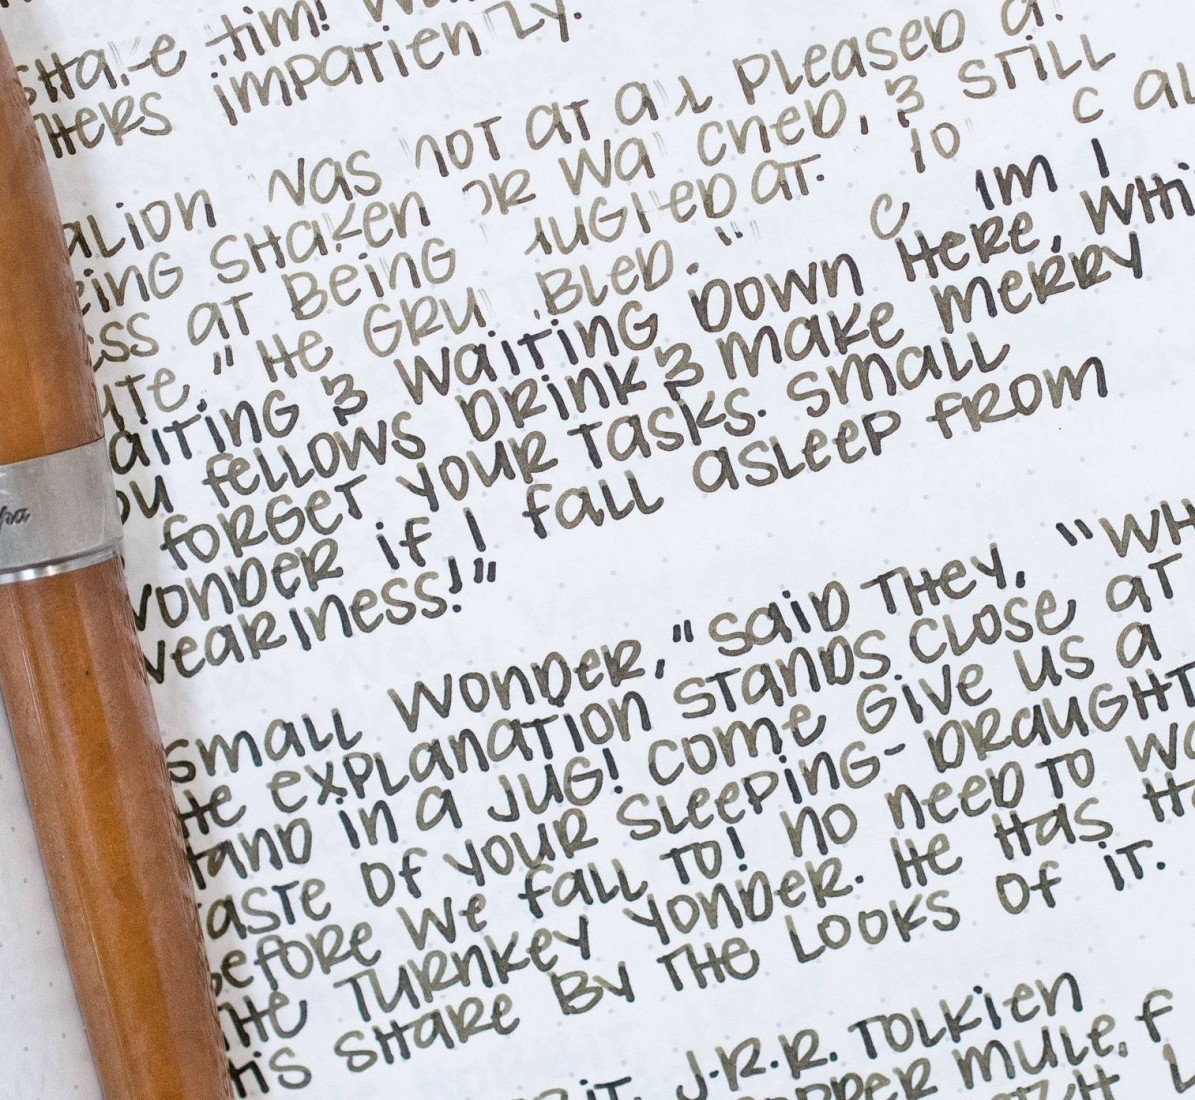 tim!
impatien ly.
alion was not at all pleased a
eing shaken or wa ched, & still
ess at being augh ed at. "
ute," he gru bled. "
aiting & waiting down here, whi
ou fellows drink & make merry
forget your tasks. Small
wonder if I fall asleep from
weariness!"
Small wonder," said they, "wh
he explanation stands close at
hand in a jug! Come give us a
taste of your sleeping-draught
before we fall to! No need to wa
the turnkey yonder. He has ha
his share by the looks of it.
it, J.R.R. Tolkien
opper Mule, F